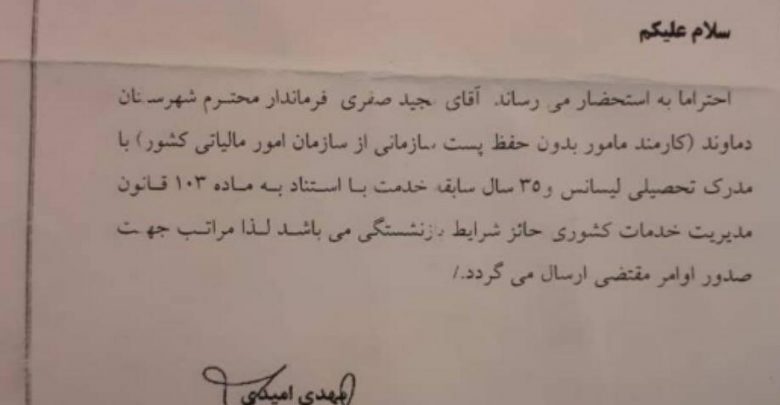 سلام علیکم
احتراما به استحضار می رساند. آقای مجید صفری فرماندار محترم شهرستان
دماوند (کارمند مامور بدون حفظ پست سازمانی از سازمان امور مالیاتی کشور) با
مدرک تحصیلی لیسانس و ۳۵ سال سابقه خدمت با استناد به ماده ۱۰۳ قانون
مدیریت خدمات کشوری حائز شرایط بازنشستگی می باشد لذا مراتب جهت
صدور اوامر مقتضی ارسال می گردد./
مهدی امیدی